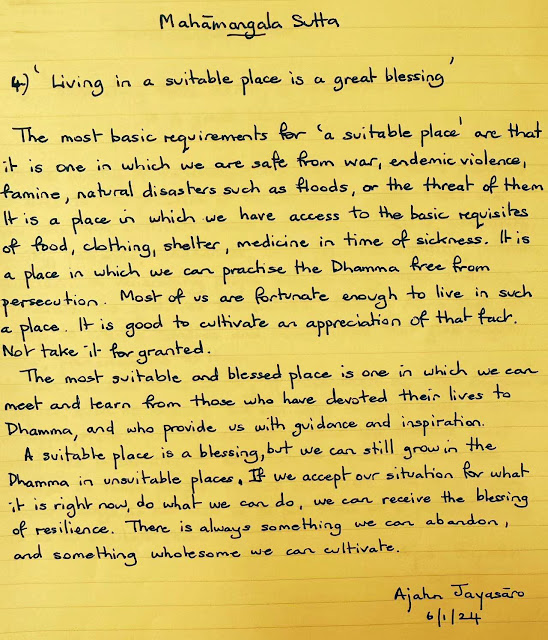 Mahāmangala Sutta
4) 'Living in a suitable place is a great blessing'
The most basic requirements for 'a suitable place' are that
it is one in which we are safe from war, endemic violence,
famine, natural disasters such as floods, or the threat of them
It is a place in which we have access to the basic requisites
of food, clothing, shelter, medicine in time of sickness. It is
a place in which we can practise the Dhamma free from
persecution. Most of us are fortunate enough to live in such
a place. It is good to cultivate an appreciation of that fact.
Not take it for granted.
The most suitable and blessed place is one in which we can
meet and learn from those who have devoted their lives to
Dhamma, and who provide us with guidance and inspiration.
A suitable place is a blessing, but we can still grow in the
Dhamma in unsuitable places. If we accept our situation for what
it is right now, do what we can do, we can receive the blessing
of resilience. There is always something we can abandon,
and something wholesome we can cultivate.
Ajahn Jayasāro
6/1/24